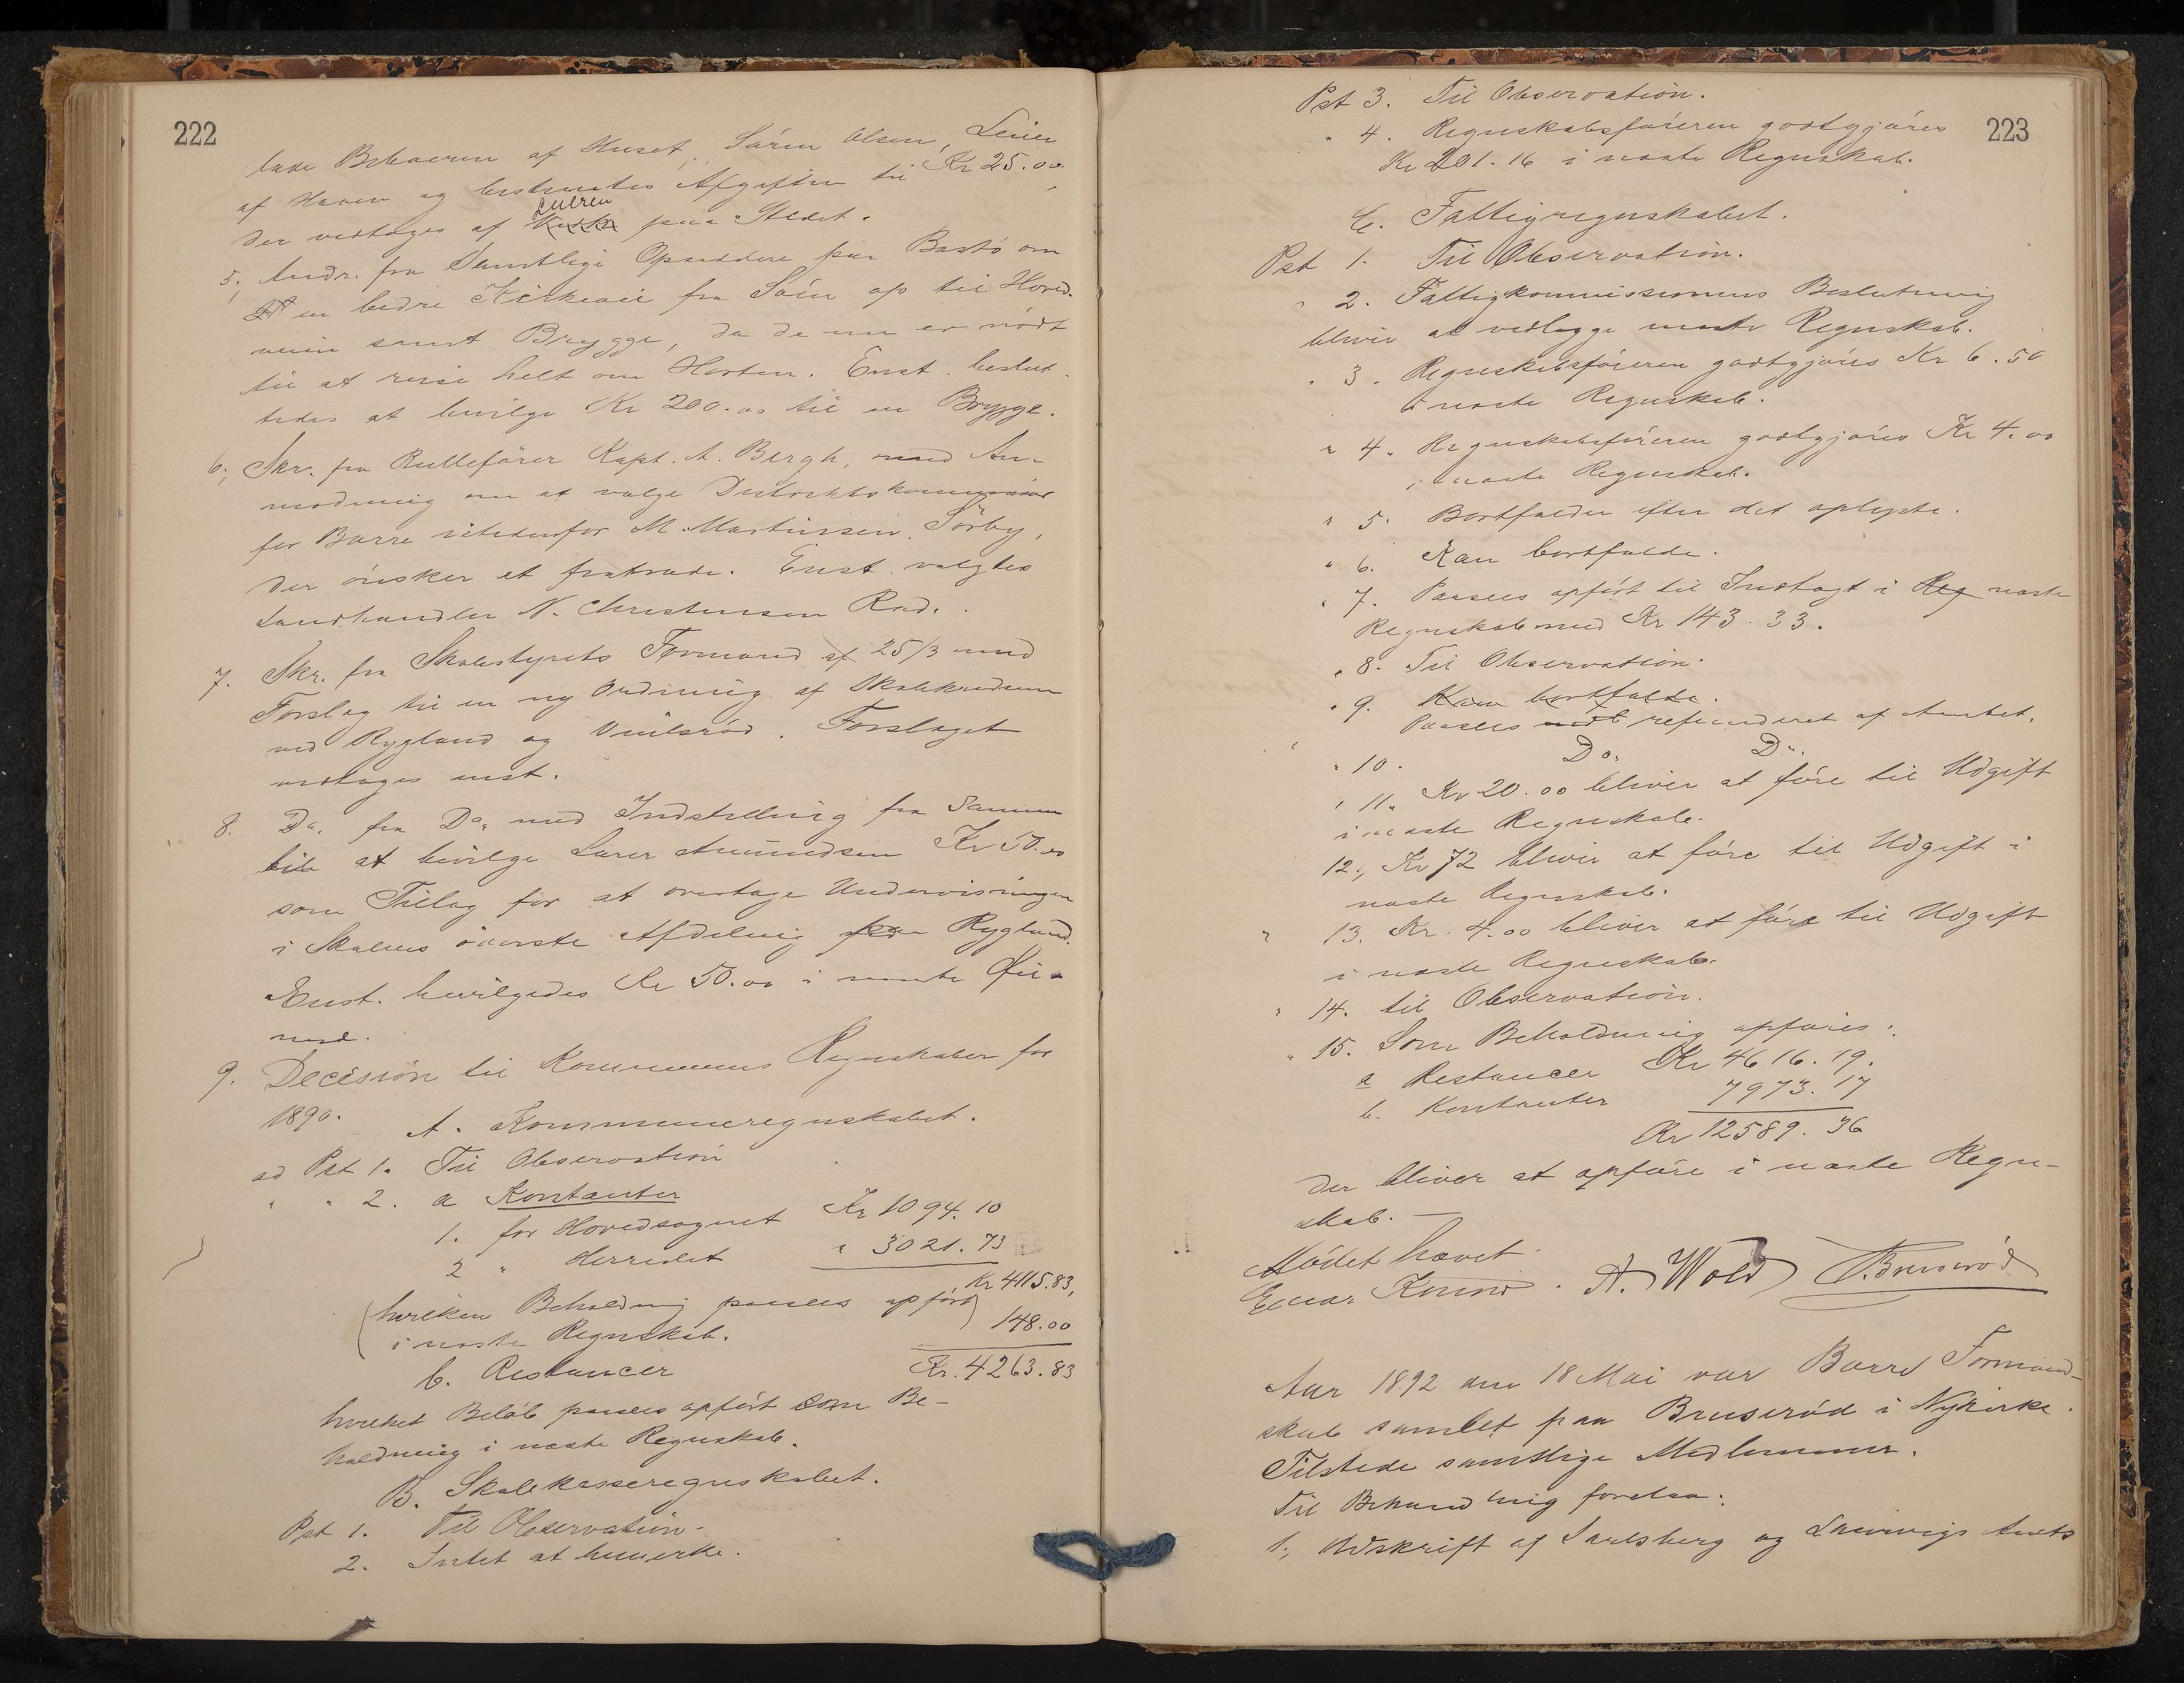 222
lade Beboeren af Huset, Sören Olsen, Leier
af Haven og bestemtes Afgiften til Kr 25.00,
der vedtages af Leieren paa Stedet.
5, Andr. fra Samtlige Opsiddere paa Bastö om
en bedre Kirkevei fra Söen op til Hoved-
veien samt Brygge, da de nu er nödt
til at reise helt om Horten. Enst. beslut-
tedes at bevilge Kr 200.00 til en Brygge.
6, Skr. fra Rullefører Kapt. A. Bergh, med An-
modning om at vælge Distriktskommissær
for Borre istedenfor M. Martinsen Sörby,
der önsker at fratræde. Enst. valgtes
Landhandler N. Christensen Rød.
7. Skr. fra Skolestyrets Formand af 25/3 med
Forslag til en ny Ordning af Skolekredsene
ved Rygland og Viulsrød. Forslaget
vedtoges enst.
8. Do. fra Do. med Indstilling fra Samme
til at bevilge Lærer Amundsen Kr 50.00
som Tillæg for at overtage Undervisningen
i Skolens överste Afdeling paa Rygland.
Enst. bevilgedes Kr 50.00 i nævnte Øie-
med.
9. Decision til Kommunens Regnskaber for
1890. A. Kommuneregnskabet.
ad Pst 1. Til Observation
" " 2. a Kontanter
1. for Hovedsognet Kr 1094.10
2 " Herredet " 3021.73
Kr 4115.83,
(hvilken Beholdning passes opfört)
i næste Regnskab. 148.00
b. Restancer Kr. 4263.83
hvilket Beløb passes opfört som Be-
holdning i næste Regnskab.
B. Skolekasseregnskabet.
Pst 1. Til Observation.
2. Intet at bemerke.
223
Pst 3. Til Observation.
" 4. Regnskabsføreren godtgjöres
Kr 201.16 i næste Regnskab.
C. Fattigregnskabet.
Pst 1. Til Observation.
" 2. Fattigkommissionens Beslutning
bliver at vedlægge næste Regnskab.
" 3. Regnskabsföreren godtgjöres Kr 6.50
i næste Regnskab.
" 4. Regnskabsföreren godtgjöres Kr 4.00
i næste Regnskab.
" 5. Bortfalder efter det oplyste.
" 6. Kan bortfalde.
" 7. Paasees opfört til Indtægt i Reg næste
Regnskab med Kr 143.33.
" 8. Til Observation.
" 9. Kan bortfalde.
Paasees refunderet af Amtet.
" 10. Do. Do.
" 11. Kr 20.00 bliver at före til Udgift
i næste Regnskab.
12., Kr 72 bliver at före til Udgift i
næste Regnskab.
" 13. Kr. 4.00 bliver at före til Udgift
i næste Regnskab.
" 14. til Observation.
" 15. Som Beholdning opföres:
a Restancer Kr 4616.19.
b. Kontanter 7973.17
Kr 12589.36
der bliver at opföre i næste Regn-
skab. —
Mödet hævet.
A. Wold Bruseröd
Aar 1892 den 18 Mai var Borre Formand-
skab samlet paa Bruseröd i Nykirke.
Tilstede samtlige Medlemmer.
Til Behandling forelaa:
1., Udskrift af Jarlsberg og Laurvigs Amts